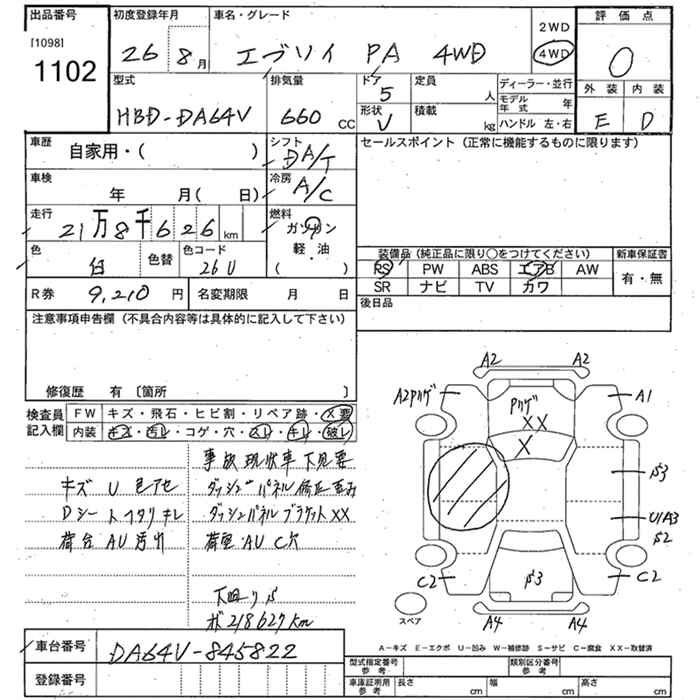 出品番号 初度登録年月 車名・グレード 評価点
[1098]
1102
26年 8月 エブリイ PA 4WD
2WD
4WD
0
型式 排気量 ドア 定員 ディーラー・並行 外装 内装
HBD-DA64V 660 CC 5 人 モデル年式 年
形状 積載
V kg ハンドル 左・右 E D
車歴 自家用・( ) シフト DA/T セールスポイント (正常に機能するものに限ります)
車検 年 月( 日) 冷房 A/C
走行 21万8千626km 燃料 ガソリン
軽・油
( )
色 白 色替 色コード 26U
装備品 (純正品に限り○をつけてください) 新車保証書
PS PW ABS エアB AW 有・無
SR ナビ TV カワ
R券 9,210円 名変期限 月 日 後日品
注意事項申告欄 (不具合内容等は具体的に記入して下さい)
修復歴 有 〔箇所 〕
検査員記入欄 FW キズ・飛石・ヒビ割・リペア跡・X要
内装 キズ・汚レ・コゲ・穴・スレ・キレ・破レ
事故現状車 下見要
キズ U 色アセ ダッシュパネル修正歪み
Dシート ヘタリ キレ ダッシュパネルブラケットXX
荷台 AU汚れ 荷室 AU C穴
下廻りS
メーター218627km
A2 A2
A2Pリゲ Pリゲ A1
XX
X
S3
U1A3
S2
C2 S3 C2
A4 A4
スペア
A-キズ E-エクボ U-凹み W-補修跡 S-サビ C-腐食 XX-取替済
車台番号 DA64V-845822
登録番号
型式指定番号 参考 類別区分番号 参考
車庫証明用 参考 長さ cm 幅 cm 高さ cm